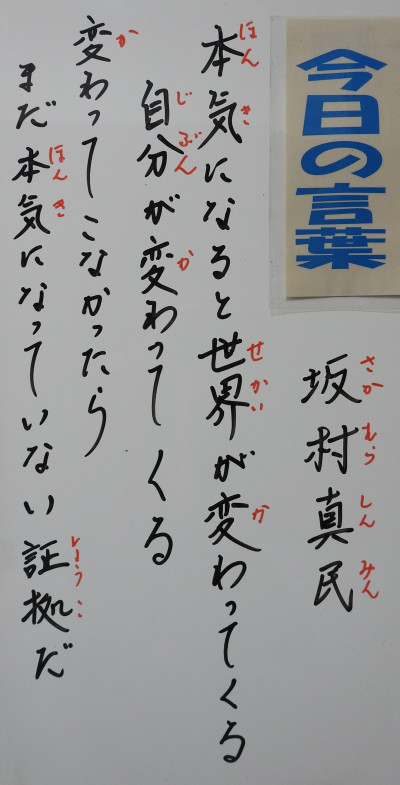 今日の言葉
さか むら しん みん
坂村真民
ほん き せかい か
本気になると世界が変わってくる
じ ぶん か
自分が変わってくる
か
変わってこなかったら
ほん き しょう こ
まだ本気になっていない証拠だ